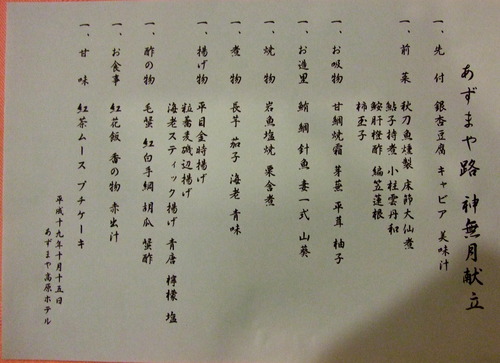 あずまや路 神無月献立
一、先付 銀杏豆腐 キャビア 美味汁
一、前菜 秋刀魚燻製 床節大仙煮
鮎子持煮 小柱雲丹和
鮟肝橙酢 編笠蓮根
柿玉子
一、お吸物 甘鯛焼霜 芽蕪 平茸 柚子
一、お造里 鮪 鯛 針魚 妻一式 山葵
一、焼物 岩魚塩焼 栗含煮
一、煮物 長芋 茄子 海老 青味
一、揚げ物 平目金時揚げ
粒蕎麦磯辺揚げ
海老スティック揚げ 青唐 檸檬 塩
一、酢の物 毛蟹 紅白手綱 胡瓜 蟹酢
一、お食事 紅花飯 香の物 赤出汁
一、甘味 紅茶ムース プチケーキ
平成十九年十月十五日
あずまや高原ホテル